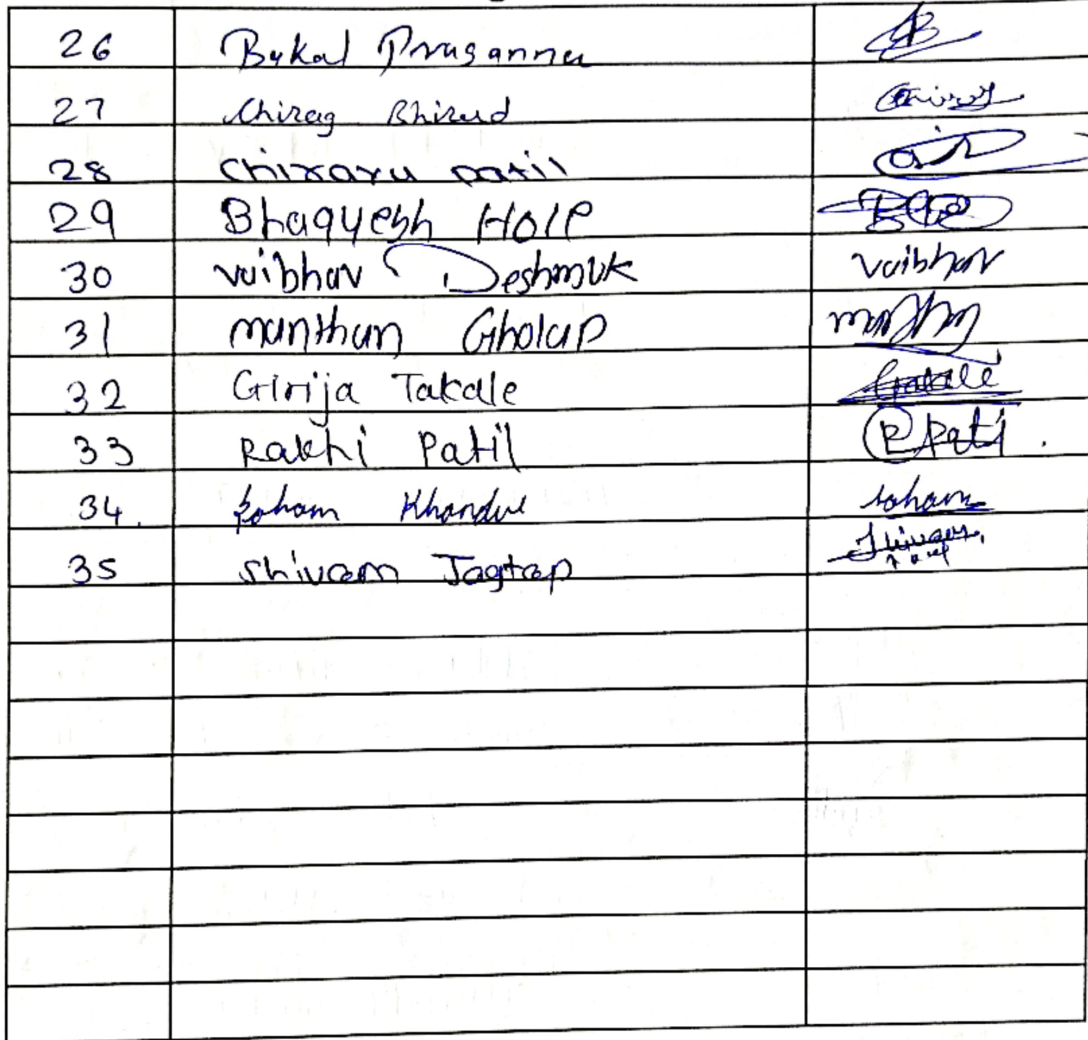 26 Bukal Prasanna
27 Chirag Bhirud Chirag
28 Chirayu patil
29 Bhagyesh Hole
30 vaibhav Deshmuk vaibhav
31 manthan Gholap
32 Girija Takale Gtakale
33 Rakhi Patil R Patil.
34. Soham Khandve soham
35 Shivam Jagtap Shivam